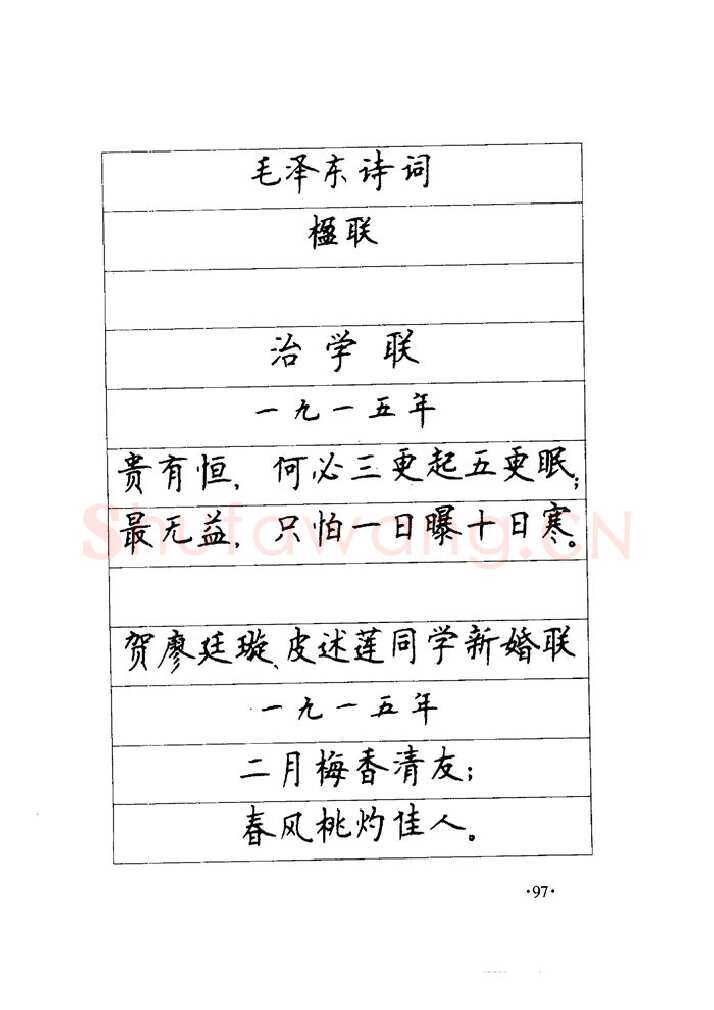 毛泽东诗词
楹联
治学联
一九一五年
贵有恒，何必三更起五更眠；
最无益，只怕一日曝十日寒。
Shufawang.CN
贺廖廷璇、皮述莲同学新婚联
一九一五年
二月梅香清友；
春风桃灼佳人。
·97·